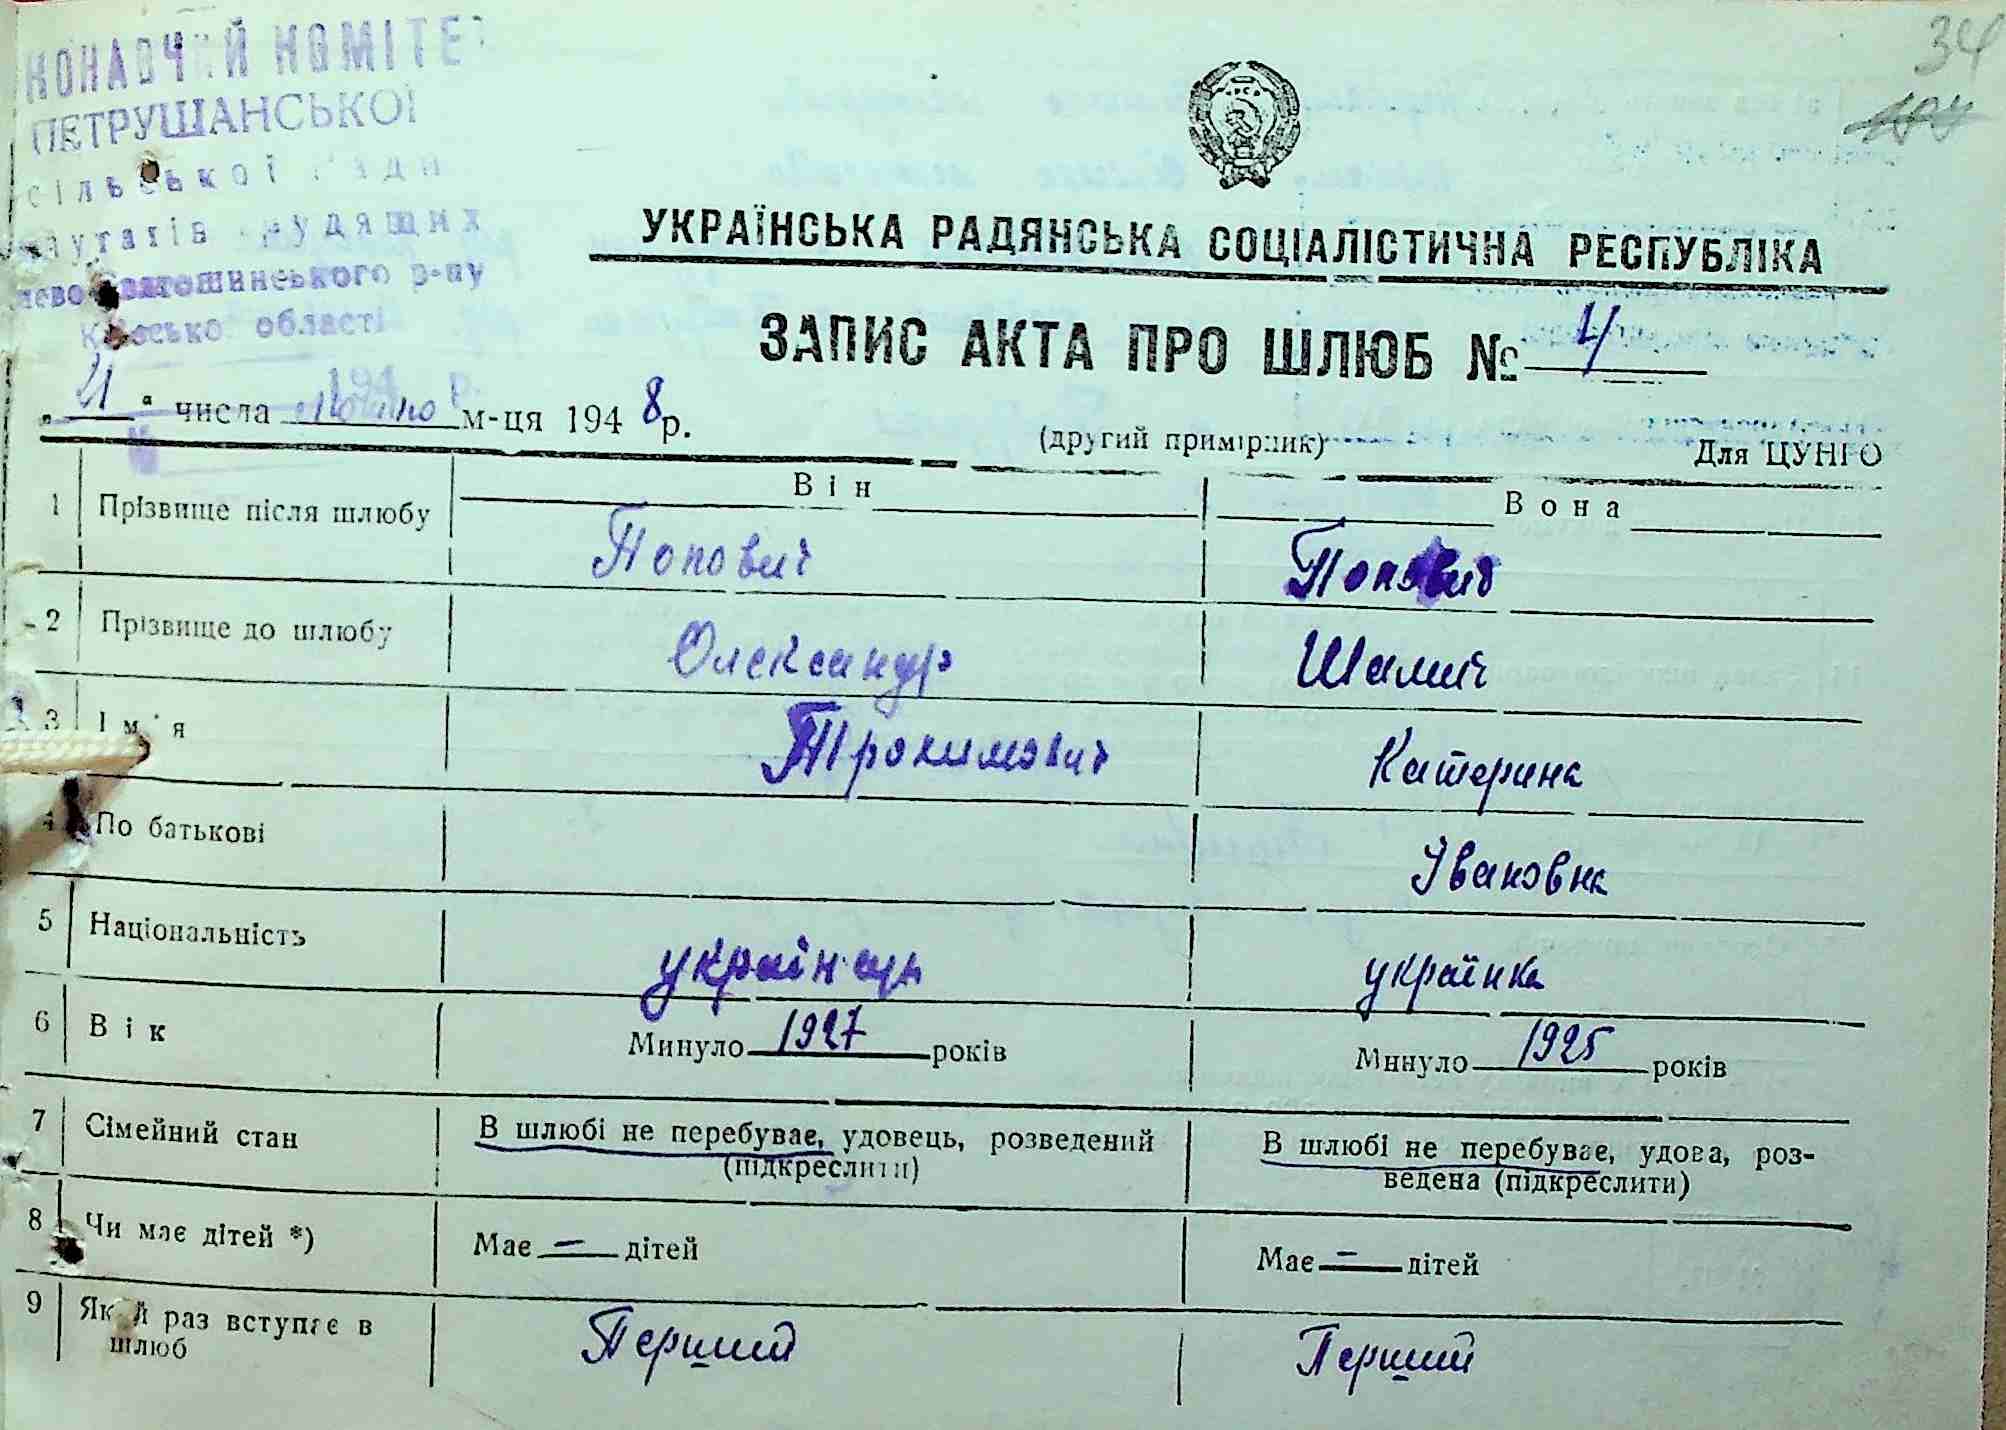 34
ПЕТРУШАНСЬКОЇ
сільської Ради
трудящих
Святошинського р-ну
області
УКРАЇНСЬКА РАДЯНСЬКА СОЦІАЛІСТИЧНА РЕСПУБЛІКА
ЗАПИС АКТА ПРО ШЛЮБ № 4
194 р.
„ 21 “ числа м-ця 1948 р.
(другий примірник) Для ЦУНГО
Він Вона
1 Прізвище після шлюбу Попович Попович
2 Прізвище до шлюбу Олександр Шалич
3 Ім'я Трохимович Катерина
4 По батькові Івановна
5 Національність українець українка
6 Вік Минуло 1927 років Минуло 1925 років
7 Сімейний стан В шлюбі не перебуває, удовець, розведений (підкреслити) В шлюбі не перебуває, удова, роз-
ведена (підкреслити)
8 Чи має дітей *) Має — дітей Має — дітей
9 Який раз вступає в шлюб Перший Перший